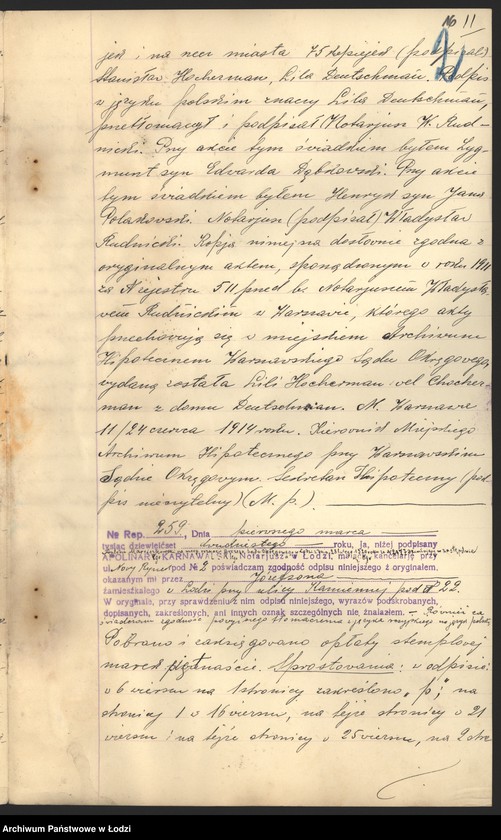 № 11
2
jest i na rzecz miasta 75 kopiejek (podpisał)
Stanisław Hocherman, Lila Deutschman. Podpis
w języku polskim znaczy Lila Deutschman,
przetłomaczył i podpisał Notarjusz W. Rud-
nicki. Przy akcie tym świadkiem byłem Zyg-
munt syn Edwarda Dąbkowski. Przy akcie
tym świadkiem byłem Henryk syn Jana
Polakowski. Notarjusz (podpisał) Władysław
Rudnicki. Kopja niniejsza dosłownie zgodna z
oryginalnym aktem, sporządzonym w roku 1911
za № rejestru 511 przed b. Notarjuszem Władysła-
wem Rudnickim w Warszawie, którego akty
przechowują się w miejskiem Archiwum
Hipotecznem Warszawskiego Sądu Okręgowego,
wydaną została Lili Hocherman vel Chocher-
man z domu Deutschman. M. Warszawa
11/24 czerwca 1914 roku. Kierownik Miejskiego
Archiwum Hipotecznego przy Warszawskim
Sądzie Okręgowym. Sekretarz Hipoteczny (pod-
pis nieczytelny) (M. p.).
№ Rep. 259, Dnia pierwszego marca
tysiąc dziewięćset dwudziestego roku, Ja, niżej podpisany
APOLINARY KARNAWALSKI, Notarjusz w Łodzi, mający kancelarję przy
ul. Nowy Rynek pod № 2 poświadczam zgodność odpisu niniejszego z oryginałem,
okazanym mi przez Józefsona
zamieszkałego w Łodzi przy ulicy Kamiennej pod № 22.
W oryginale, przy sprawdzeniu z nim odpisu niniejszego, wyrazów podskrobanych,
dopisanych, zakreślonych, ani innych oznak szczególnych nie znalazłem. Również za
świadczam zgodność powyższego tłomaczenia z języka rosyjskiego na język polski.
Pobrano i zaksięgowano opłaty stemplowej
marek piętnaście. Sprostowania: w odpisie:
w 6 wierszu na 1 stronicy zakreślono "p"; na
stronicy 1 w 16 wierszu, na tejże stronicy w 21
wierszu i na tejże stronicy w 25 wierszu, na 2 stro
Archiwum Państwowe w Łodzi